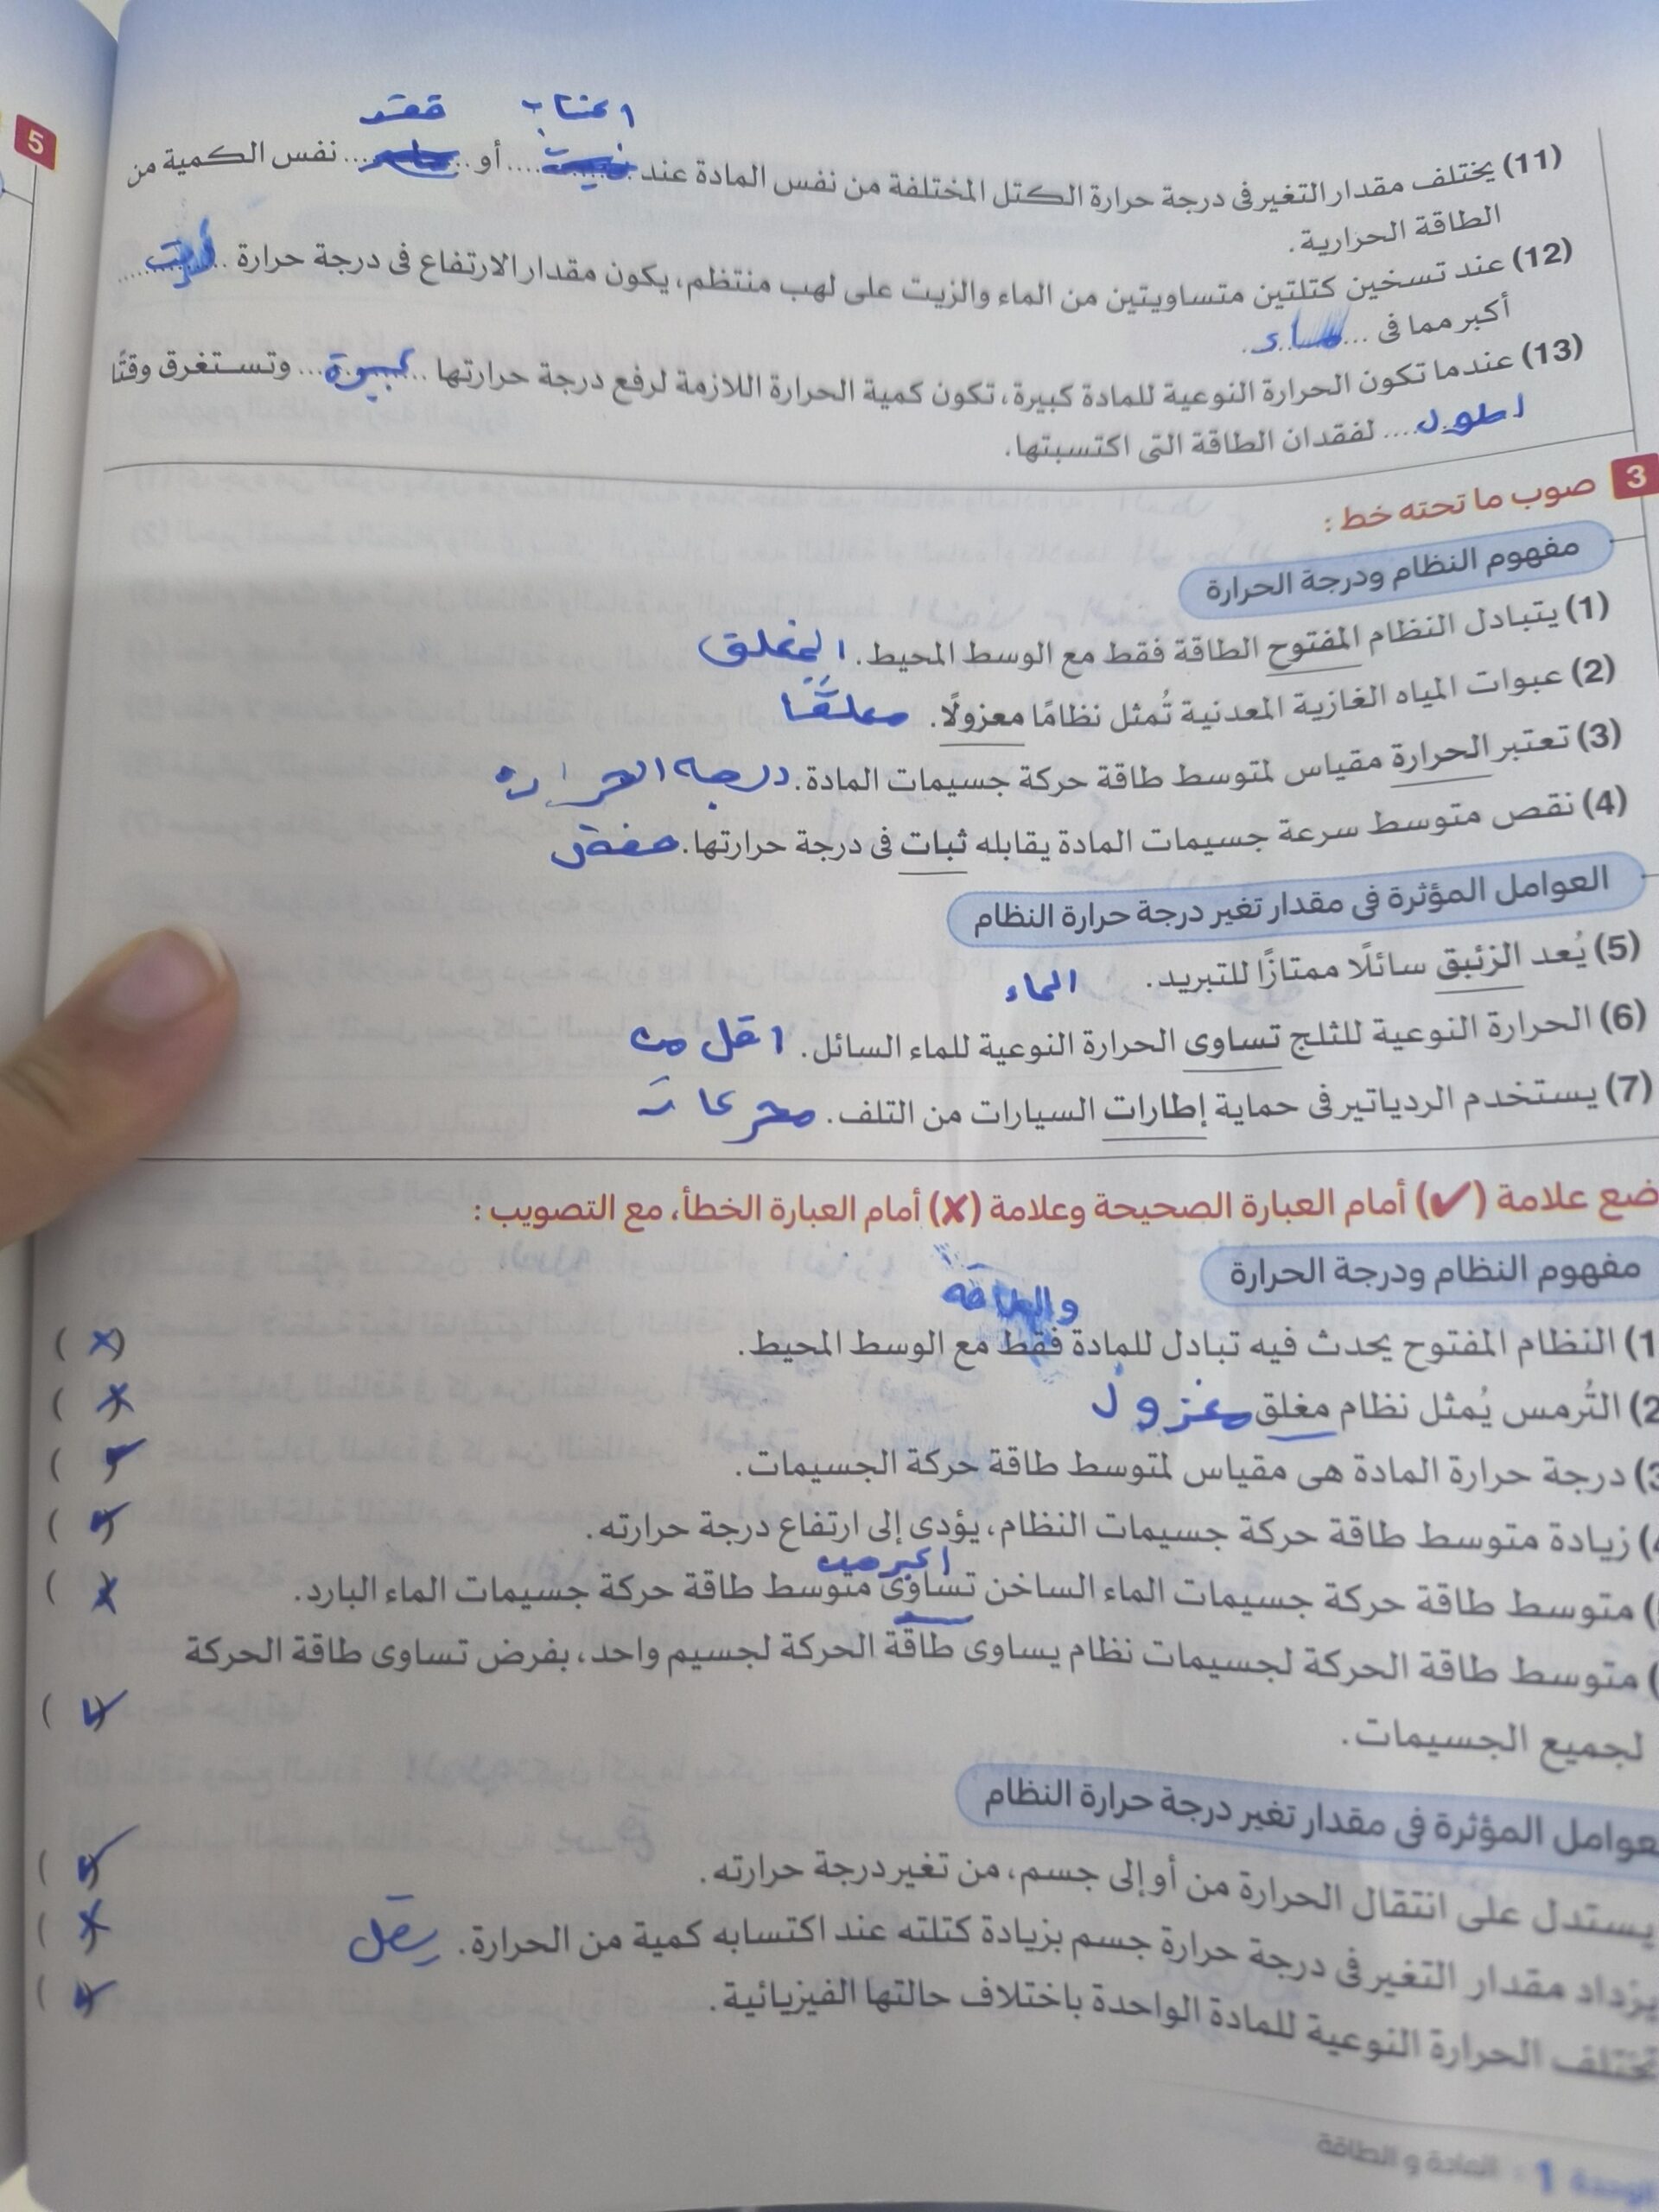 5
اكتساب فقد
(11) يختلف مقدار التغير فى درجة حرارة الكتل المختلفة من نفس المادة عند ........ أو ........ نفس الكمية من
الطاقة الحرارية.
(12) عند تسخين كتلتين متساويتين من الماء والزيت على لهب منتظم، يكون مقدار الارتفاع فى درجة حرارة الزيت
أكبر مما فى ........
(13) عندما تكون الحرارة النوعية للمادة كبيرة، تكون كمية الحرارة اللازمة لرفع درجة حرارتها كبيرة وتستغرق وقتًا
اطول لفقدان الطاقة التى اكتسبتها.
3 صوب ما تحته خط :
مفهوم النظام ودرجة الحرارة
(1) يتبادل النظام المفتوح الطاقة فقط مع الوسط المحيط. المغلق
(2) عبوات المياه الغازية المعدنية تُمثل نظامًا معزولًا. مغلقًا
(3) تعتبر الحرارة مقياس لمتوسط طاقة حركة جسيمات المادة. درجه الحراره
(4) نقص متوسط سرعة جسيمات المادة يقابله ثبات فى درجة حرارتها.
العوامل المؤثرة فى مقدار تغير درجة حرارة النظام
(5) يُعد الزئبق سائلًا ممتازًا للتبريد. الماء
(6) الحرارة النوعية للثلج تساوى الحرارة النوعية للماء السائل. اقل من
(7) يستخدم الردياتير فى حماية إطارات السيارات من التلف. محركات
ضع علامة (✔) أمام العبارة الصحيحة وعلامة (✘) أمام العبارة الخطأ، مع التصويب :
مفهوم النظام ودرجة الحرارة
والطاقة
1) النظام المفتوح يحدث فيه تبادل للمادة فقط مع الوسط المحيط. (✗)
2) التُرمس يُمثل نظام مغلق معزول (✗)
3) درجة حرارة المادة هى مقياس لمتوسط طاقة حركة الجسيمات. (✓)
) زيادة متوسط طاقة حركة جسيمات النظام، يؤدى إلى ارتفاع درجة حرارته. (✓)
اكبر من
) متوسط طاقة حركة جسيمات الماء الساخن تساوى متوسط طاقة حركة جسيمات الماء البارد. (✗)
) متوسط طاقة الحركة لجسيمات نظام يساوى طاقة الحركة لجسيم واحد، بفرض تساوى طاقة الحركة
لجميع الجسيمات. (✓)
عوامل المؤثرة فى مقدار تغير درجة حرارة النظام
يستدل على انتقال الحرارة من أو إلى جسم، من تغير درجة حرارته. (✓)
يزداد مقدار التغير فى درجة حرارة جسم بزيادة كتلته عند اكتسابه كمية من الحرارة. يقل (✗)
تختلف الحرارة النوعية للمادة الواحدة باختلاف حالتها الفيزيائية. (✓)
الوحدة 1 : المادة و الطاقة